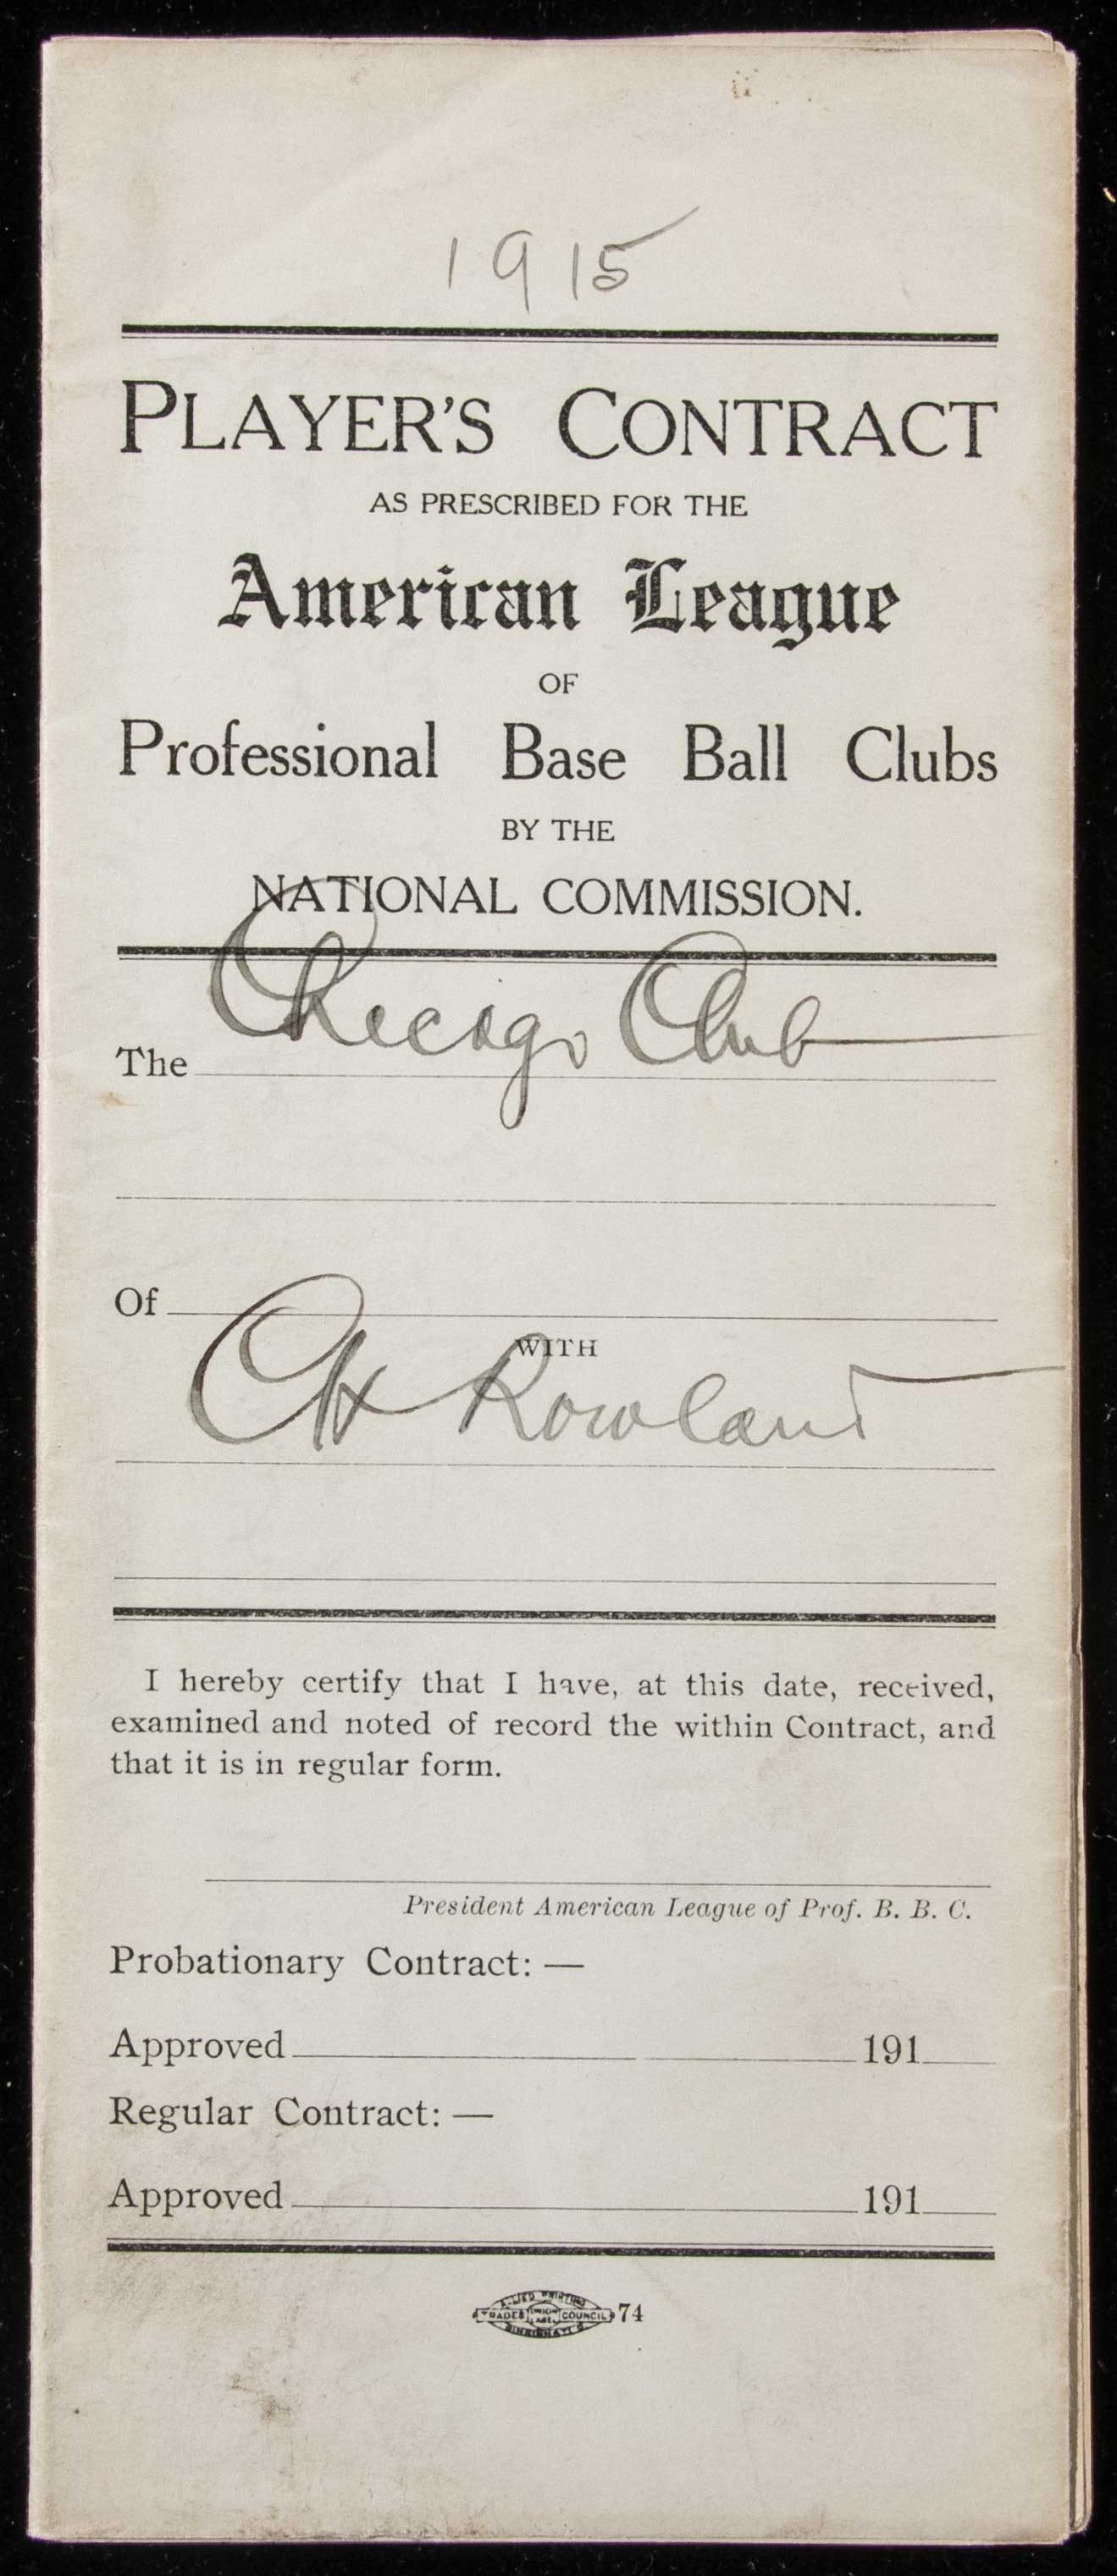 1915
PLAYER'S CONTRACT
AS PRESCRIBED FOR THE
American League
OF
Professional Base Ball Clubs
BY THE
NATIONAL COMMISSION.
The Chicago Club
Of
WITH
CH Rowland
I hereby certify that I have, at this date, received,
examined and noted of record the within Contract, and
that it is in regular form.
President American League of Prof. B. B. C.
Probationary Contract: —
Approved 191
Regular Contract: —
Approved 191
ALLIED PRINTING
TRADES UNION LABEL COUNCIL 74
CINCINNATI O.